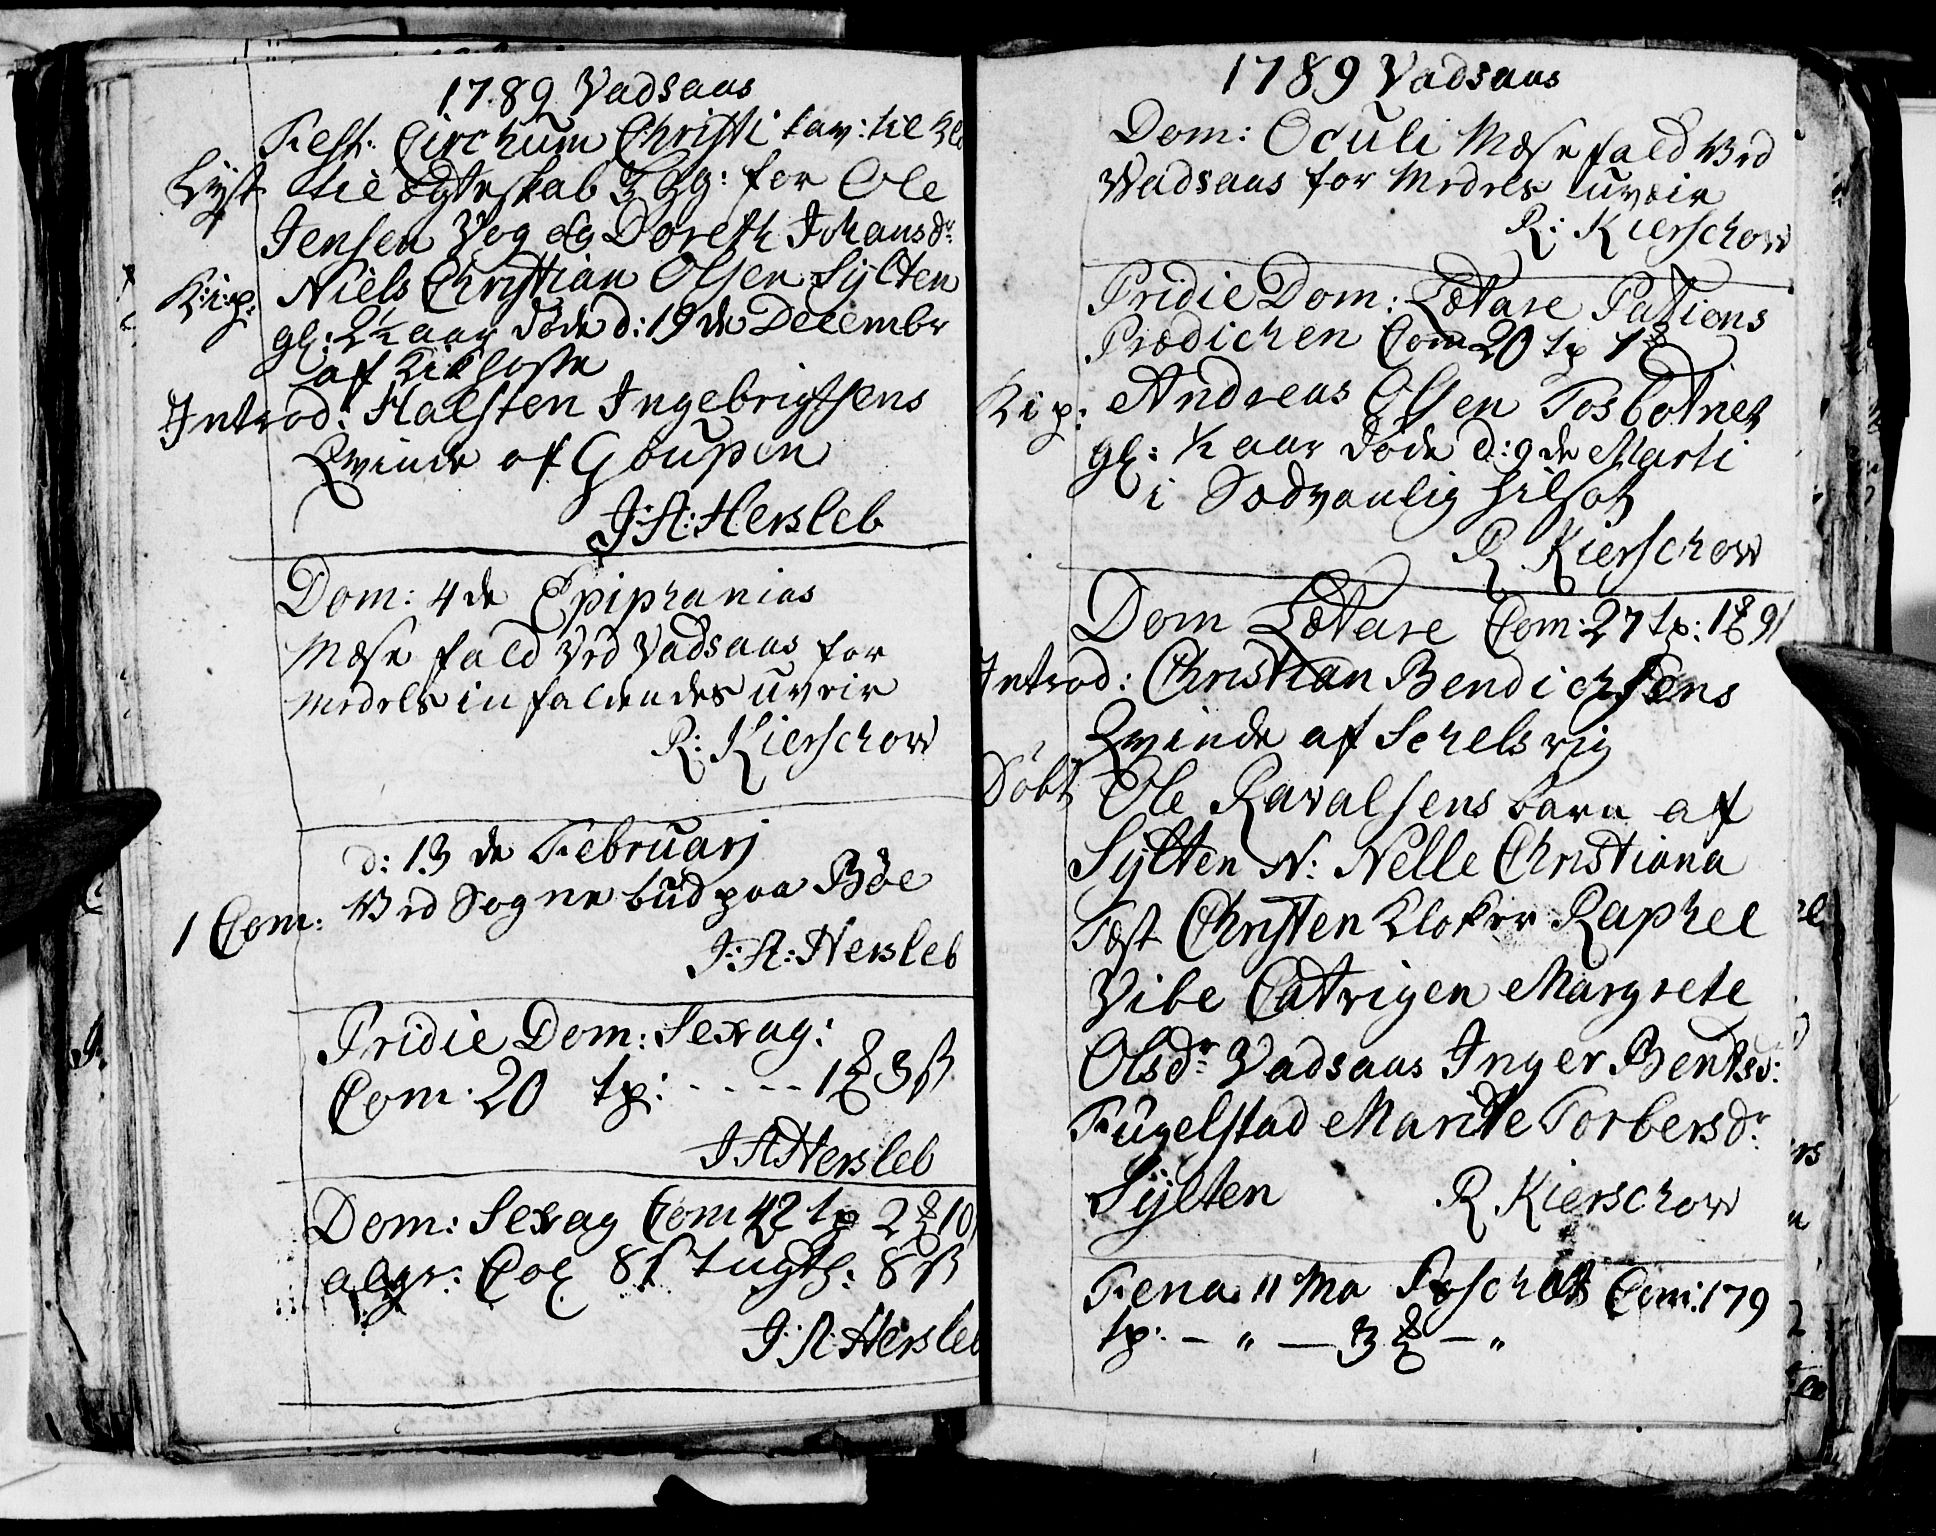 1789 Vadsaas
Fest: Circhum Christi tav: til
Lyst til Ægteskab 3 Gg: for Ole
Jensen Vog og Doreth Johansdr
K:i:p: Niels Christian Olsen Sylten
gl: 2½ aar døde d: 19 de Decembr
af
Introd: Halsten Ingebrigtsens
Qvinde af Goupen
J:A: Hersleb
Dom: 4 de Epiphanias
Mæse fald Ved Vadsaas for
Medels infaldendes uveir
R: Kierschow
d: 13 de Februarj
1 Com: Ved Sogne bud paa Böe
J:A: Hersleb
Pridie Dom: Sexag:
Com: 20 tp: - - - - 1 3 ß
J A Hersleb
Dom: Sexag Com 42 tp 2 10
algr: Col 8 ß tugth: 8 ß
J:A: Hersleb
1789 Vadsaas
Dom: Oculi Mæse fald Ved
Vadsaas for Medels uveir
R: Kierschow
Pridie Dom: Lætare Pations
Prædichen Com 20 tp 1
K i p: Andreas Olsen Tosbotnet
gl: ½ aar døde d: 9 de Marti
i Sædvanlig hilsot
R Kierschow
Dom Lætare Com: 27 tp: 1 9
Introd: Christian Bendichsens
Qvinde af Schelsvig
Döbt Ole Ravalsens barn af
Sylten N: Nelle Christiana
Test Christen Kloker Raphel
Vibe Catrigen Margrete
Olsdr Vadsaas Inger Bentsd:
Fugelstad Marite Torbersdr
Sylten R. Kierschow
Feria 11 Ma Paschat Com: 179
tp: — " — 3 — "